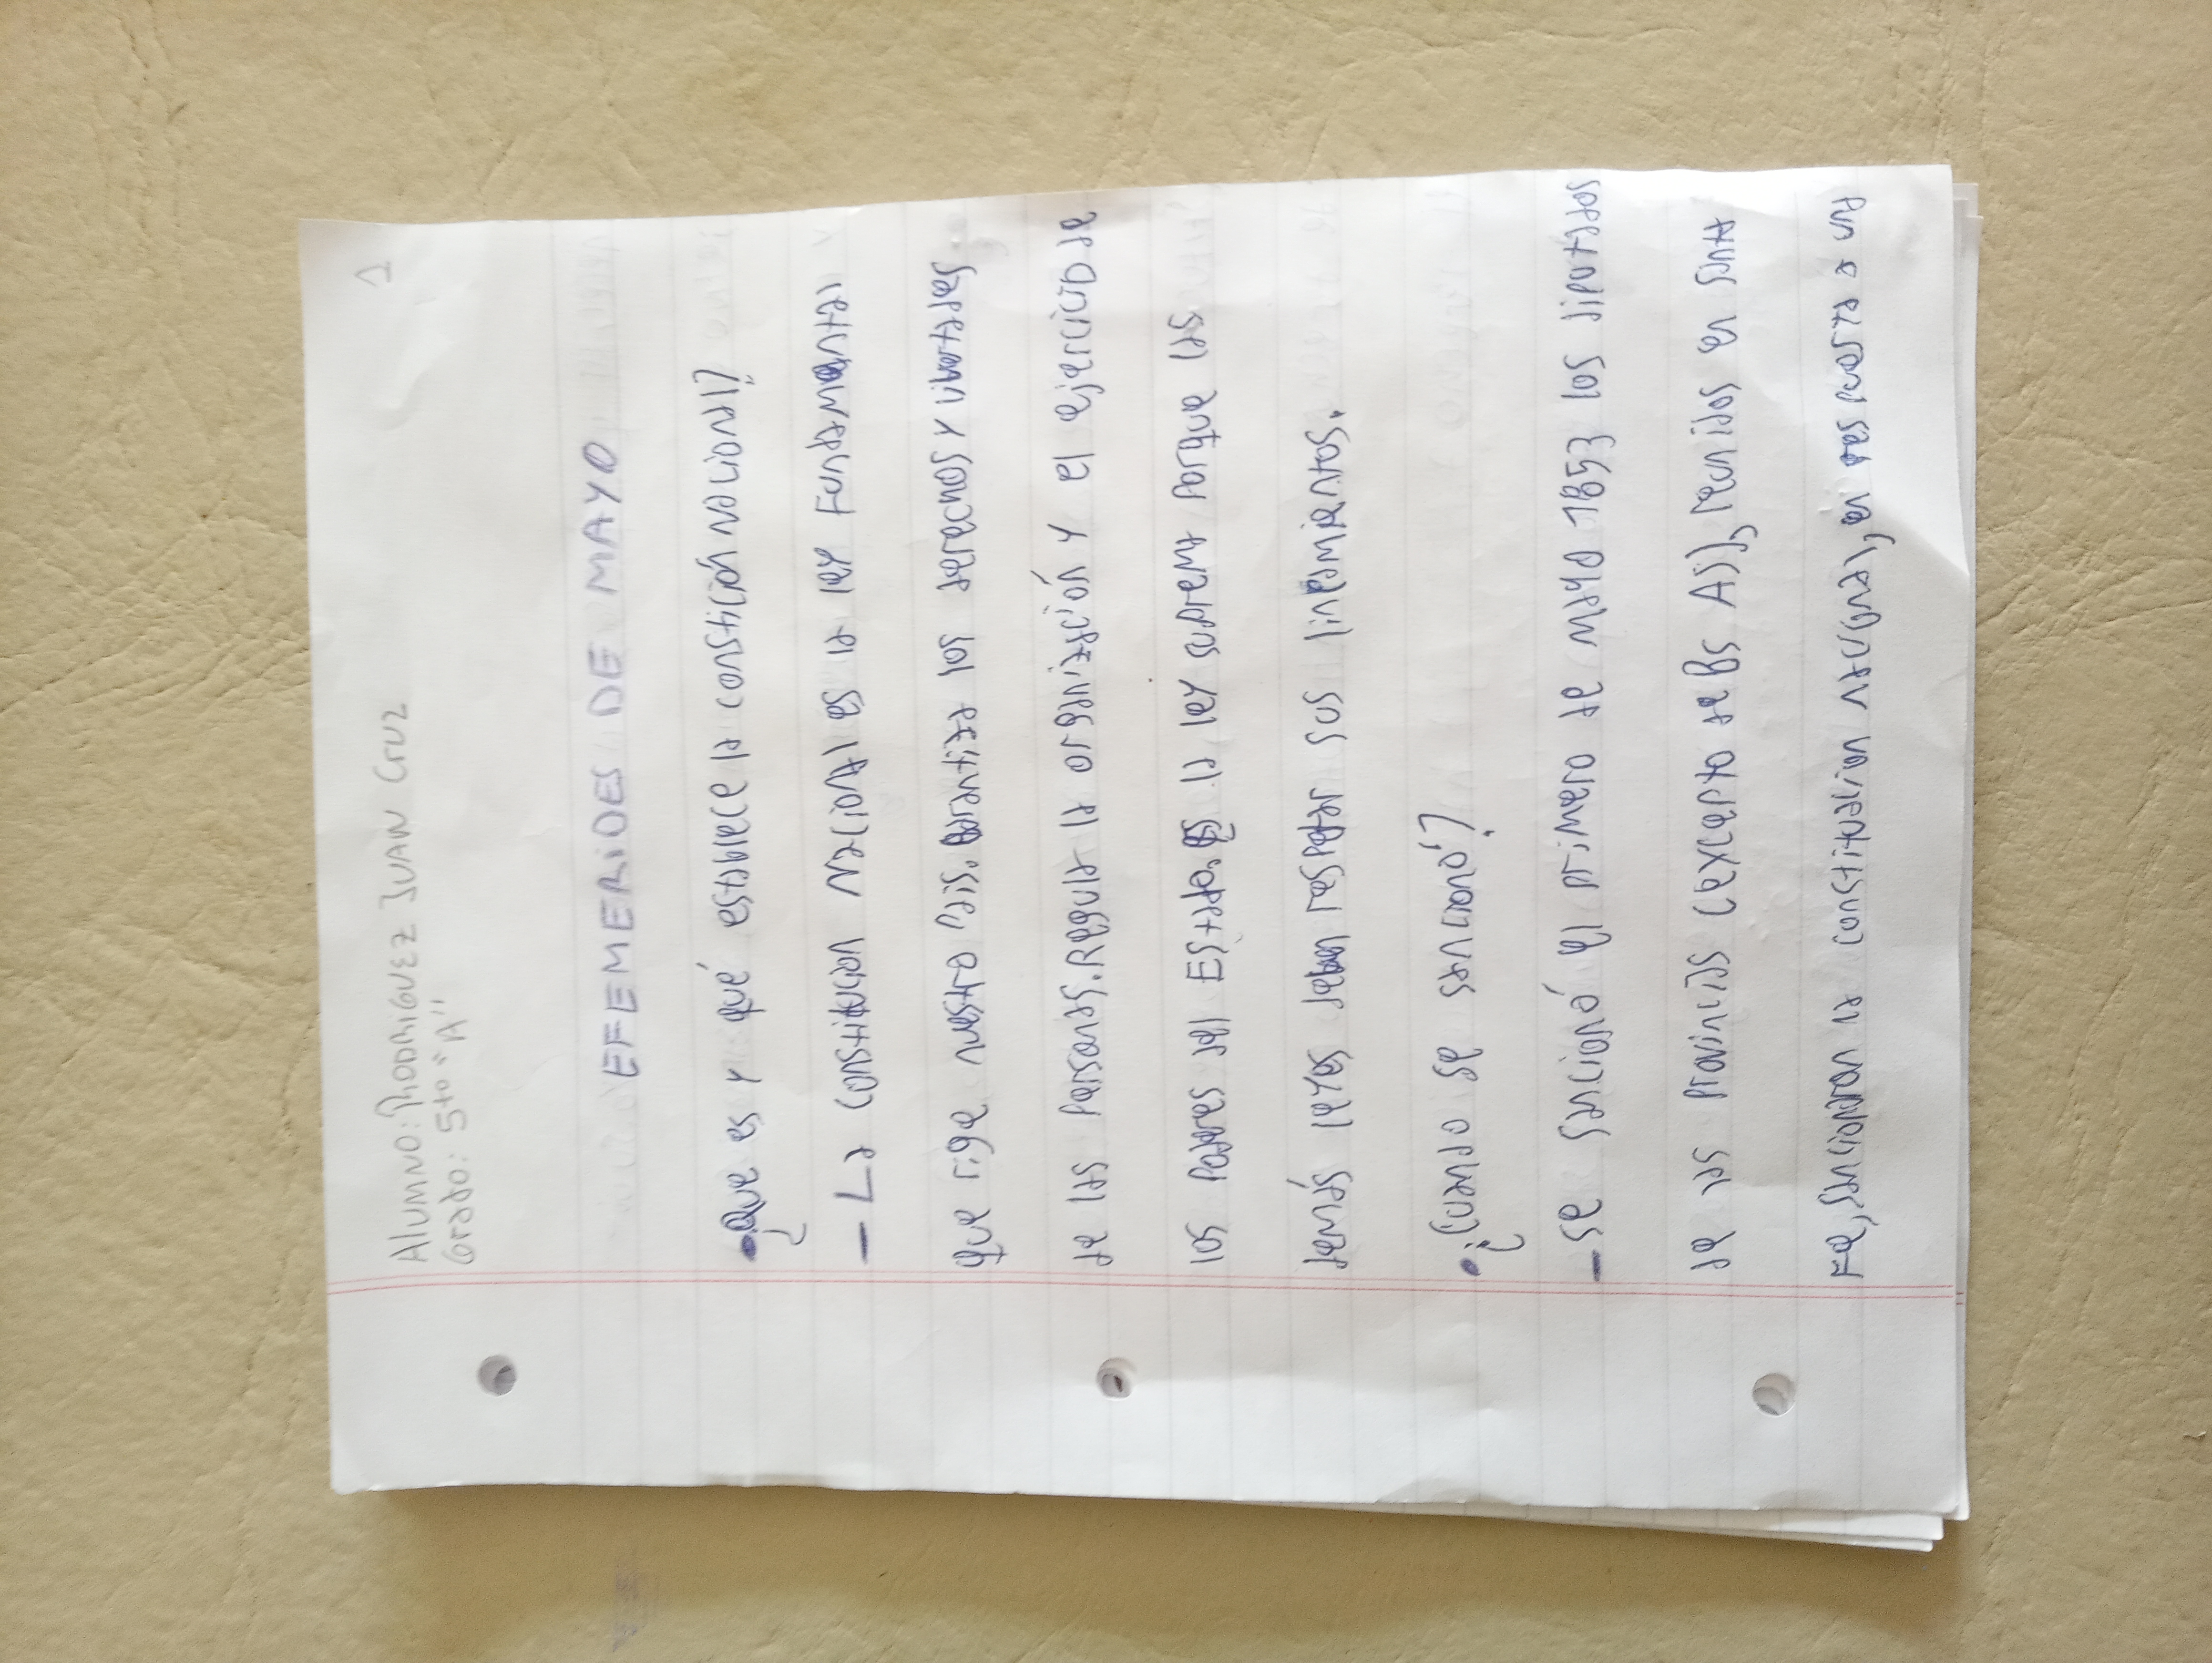 1
Alumno: Rodriguez Juan Cruz
Grado: 5to "A"
EFEMERIDES DE MAYO
• ¿que es y qué establece la constición nacional?
— La constitucion Nacional es la ley Fundamental
que rige nuestro país, garantiza los derechos y libertades
de las personas. Regula la organización y el ejercicio de
los poderes del Estado. Es la ley suprema porque las
demás leyes deben respetar sus lineamientos.
• ¿cuando se sancionó?
— se sancionó el primero de mayo 1853 los diputados
de las provincias (excepto Bs As), reunidos en Santa
Fe, sancionaron la constitución Nacional, en respuesta a un